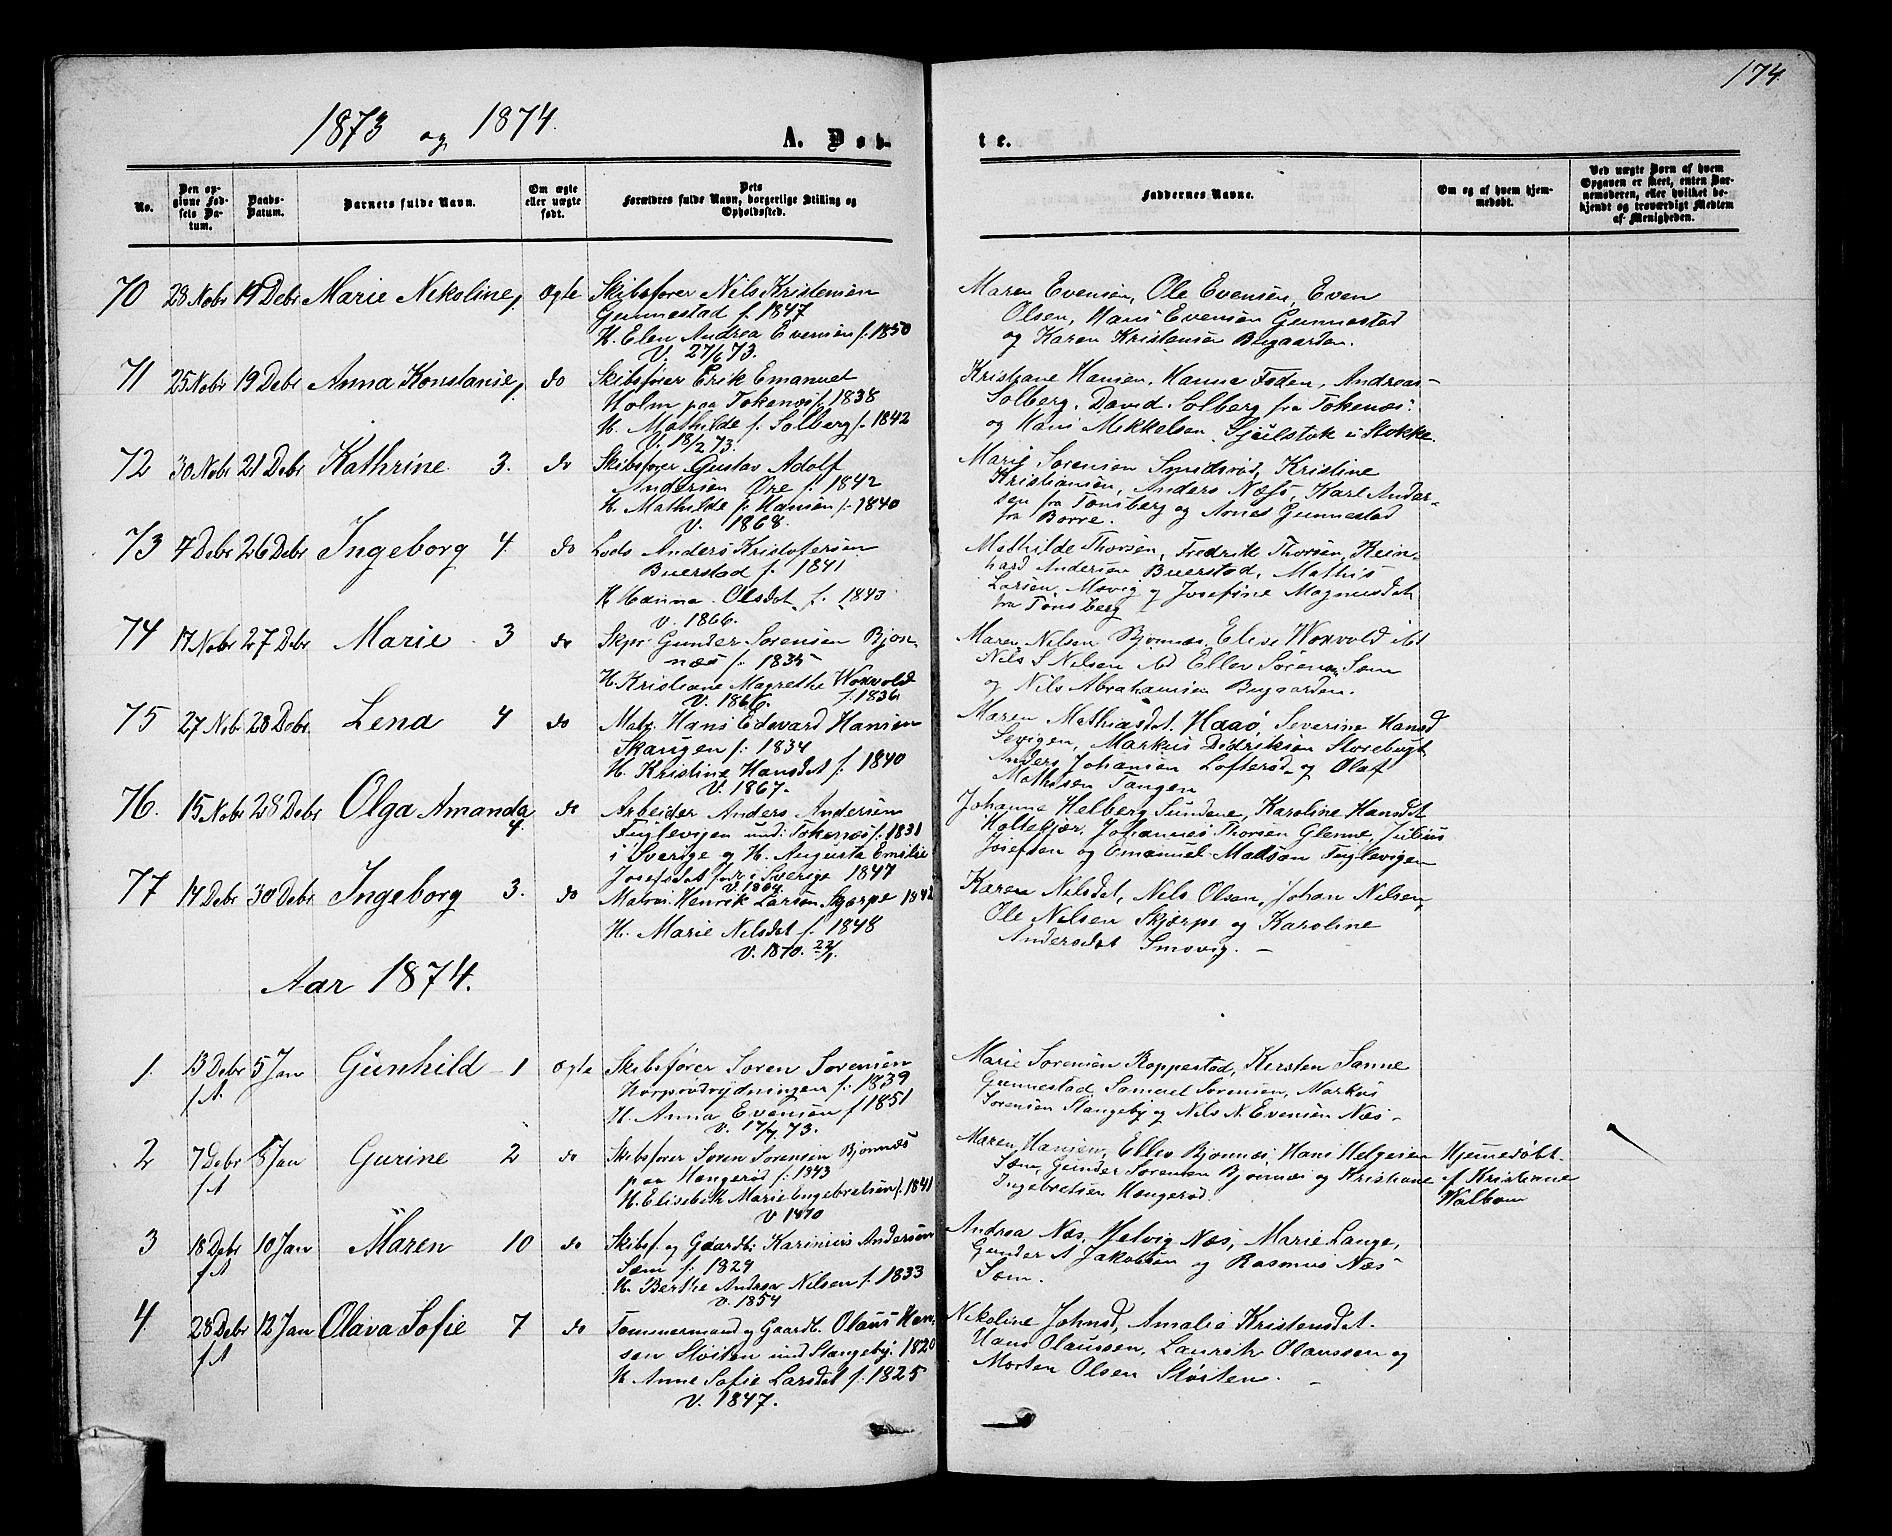 174
1873 og 1874.
A. Døb-
te.
No.
Den op-
givne Fød-
sels Da-
tum.
Daabs-
Datum.
Barnets fulde Navn.
Om ægte
eller uægte
født.
Dets
Forældres fulde Navn, borgerlige Stilling og
Opholdssted.
Faddernes Navne.
Om og af hvem hjem-
medøbt.
Ved uægte Børn af hvem
Opgaven er skeet, enten Bar-
nemoderen, eller hvilket be-
kjendt og troværdigt Medlem
af Menigheden.
70 28 Nobr 19 Debr Marie Nekoline, ægte Skibsfører Nils Kristensen
Gunnestad f. 1847
H. Elen Andrea Evensen f. 1850
V. 27/6 73.
Maren Evensen, Ole Evensen, Even
Olsen, Hans Evensen Gunnestad
og Karen Kristensen Bugaarden.
71 25 Nobr 19 Debr Anna Konstanse, do Skibsfører Erik Emanuel
Holm paa Tokenæs f. 1838
H. Mathilde f. Solberg f. 1842
V. 18/2 73.
Kristiane Hansen, Hanna Foden, Andreas
Solberg, David Solberg fra Tokenæs
og Hans Mikkelsen Gjeilstok i Stokke.
72 30 Nobr 21 Debr Kathrine 3. do Skibsfører Gustav Adolf
Andersen Øre f. 1842
H. Mathilde f. Hansen f. 1840
V. 1868.
Marie Sørensen Smidsrød, Kristine
Kristiansen, Anders Næss, Karl Ander-
sen fra Tønsberg og Arnes Gunnestad
fra Borre.
73 7 Debr 26 Debr Ingeborg 4. do Lods Anders Kristofersen
Buerstad f. 1841
H. Hanna Olsdat. f. 1843
V. 1866.
Mathilde Thorsen, Fredrik Thorsen, Rein-
hard Andersen Buerstad, Mathis
Larsen, Movig og Josefine Magnusdat
fra Tønsberg
74 17 Nobr 27 Debr Marie 3 do Skpr Gunder Sørensen Bjøn-
næs f. 1835
H. Kristiane Magrethe Woxvold
V. 1866. f. 1836
Maren Nilsen Bjønnæs, Elise Woxvold
Nils S Nilsen Ellev Sørensen Sem
og Nils Abrahamsen Bugaarden.
75 27 Nobr 28 Debr Lena 4 do Matr. Hans Edevard Hansen
Skangen f. 1834
H. Kristine Hansdat f. 1840
V. 1867.
Maren Mathiasdat. Haaø, Severine Hansd
Sevigen, Markus Didriksen Storebugt
Anders Johansen Lofterød og Olaf
Mathisen Tangen
76. 15 Nobr 28 Debr Olga Amanda 4. do Arbeider Anders Andersen
Fuglevigen und: Tokenæs f. 1831
i Sverige og H. Augusta Emilie
Josefsdat født i Sverige 1847
V. 1864.
Johanne Helberg Sundene, Karoline Hansdt
Holtekjær, Johannes Thorsen Glenne, Julius
Josefsen og Emanuel Madsen Fuglevigen
77 14 Debr 30 Debr Ingeborg 3. do Matros Henrik Larsen Skjerpe 1842
H. Marie Nilsdat f. 1848
V. 1870. 22/1.
Karen Nilsdat, Nils Olsen, Johan Nilsen,
Ole Nilsen Skjærpe og Karoline
Andersdat Smovig. —
Aar 1874.
1. 13 Debr f.A. 5 Jan Gunhild 1 ægte Skibsfører Søren Sørensen
Horperødrydningen f. 1839
H. Anna Evensen f 1851
V. 17/7 73.
Marie Sørensen Roppestad, Kirsten Sanne
Gunnestad, Samuel Sørensen, Markus
Sørensen Stangeby og Nils N. Evensen Næs
2 7 Debr f.A 8 Jan Gurine 2 do Skibsfører Søren Sørensen Bjønnæs
paa Hengerød f. 1843
H. Elisebeth Marie Engebretsen f. 1841
V 1870
Maren Hansen, Ellev Bjønnæs, Hans Helgesen
Sæm, Gunder Sørensen Bjønnæs og Kristiane
Ingebretsen Hengerød.
Hjemmedøbt
af Kristiane
Walbom
3 18 Debr f.A 10 Jan Maren 10 do Skibsf. og Gaardb: Karinius Andersen
Sæm f. 1829
H. Berthe Andrea Nilsen f. 1833
V. 1854
Andrea Næs, Helvig Næs, Marie Lange,
Gunder A Jakobsen og Rasmus Næs
Sæm.
4. 28 Debr f.A 12 Jan Olava Sofie 7 do Tømmermand og Gaardb. Olaus Han-
sen Støiten und Stangeby: 1820
H Anne Sofie Larsdat f. 1825
V. 1847.
Nikoline Johnsd, Amalia Kristensdat.
Hans Olaussen, Laurits Olaussen og
Morten Olsen Støiten.